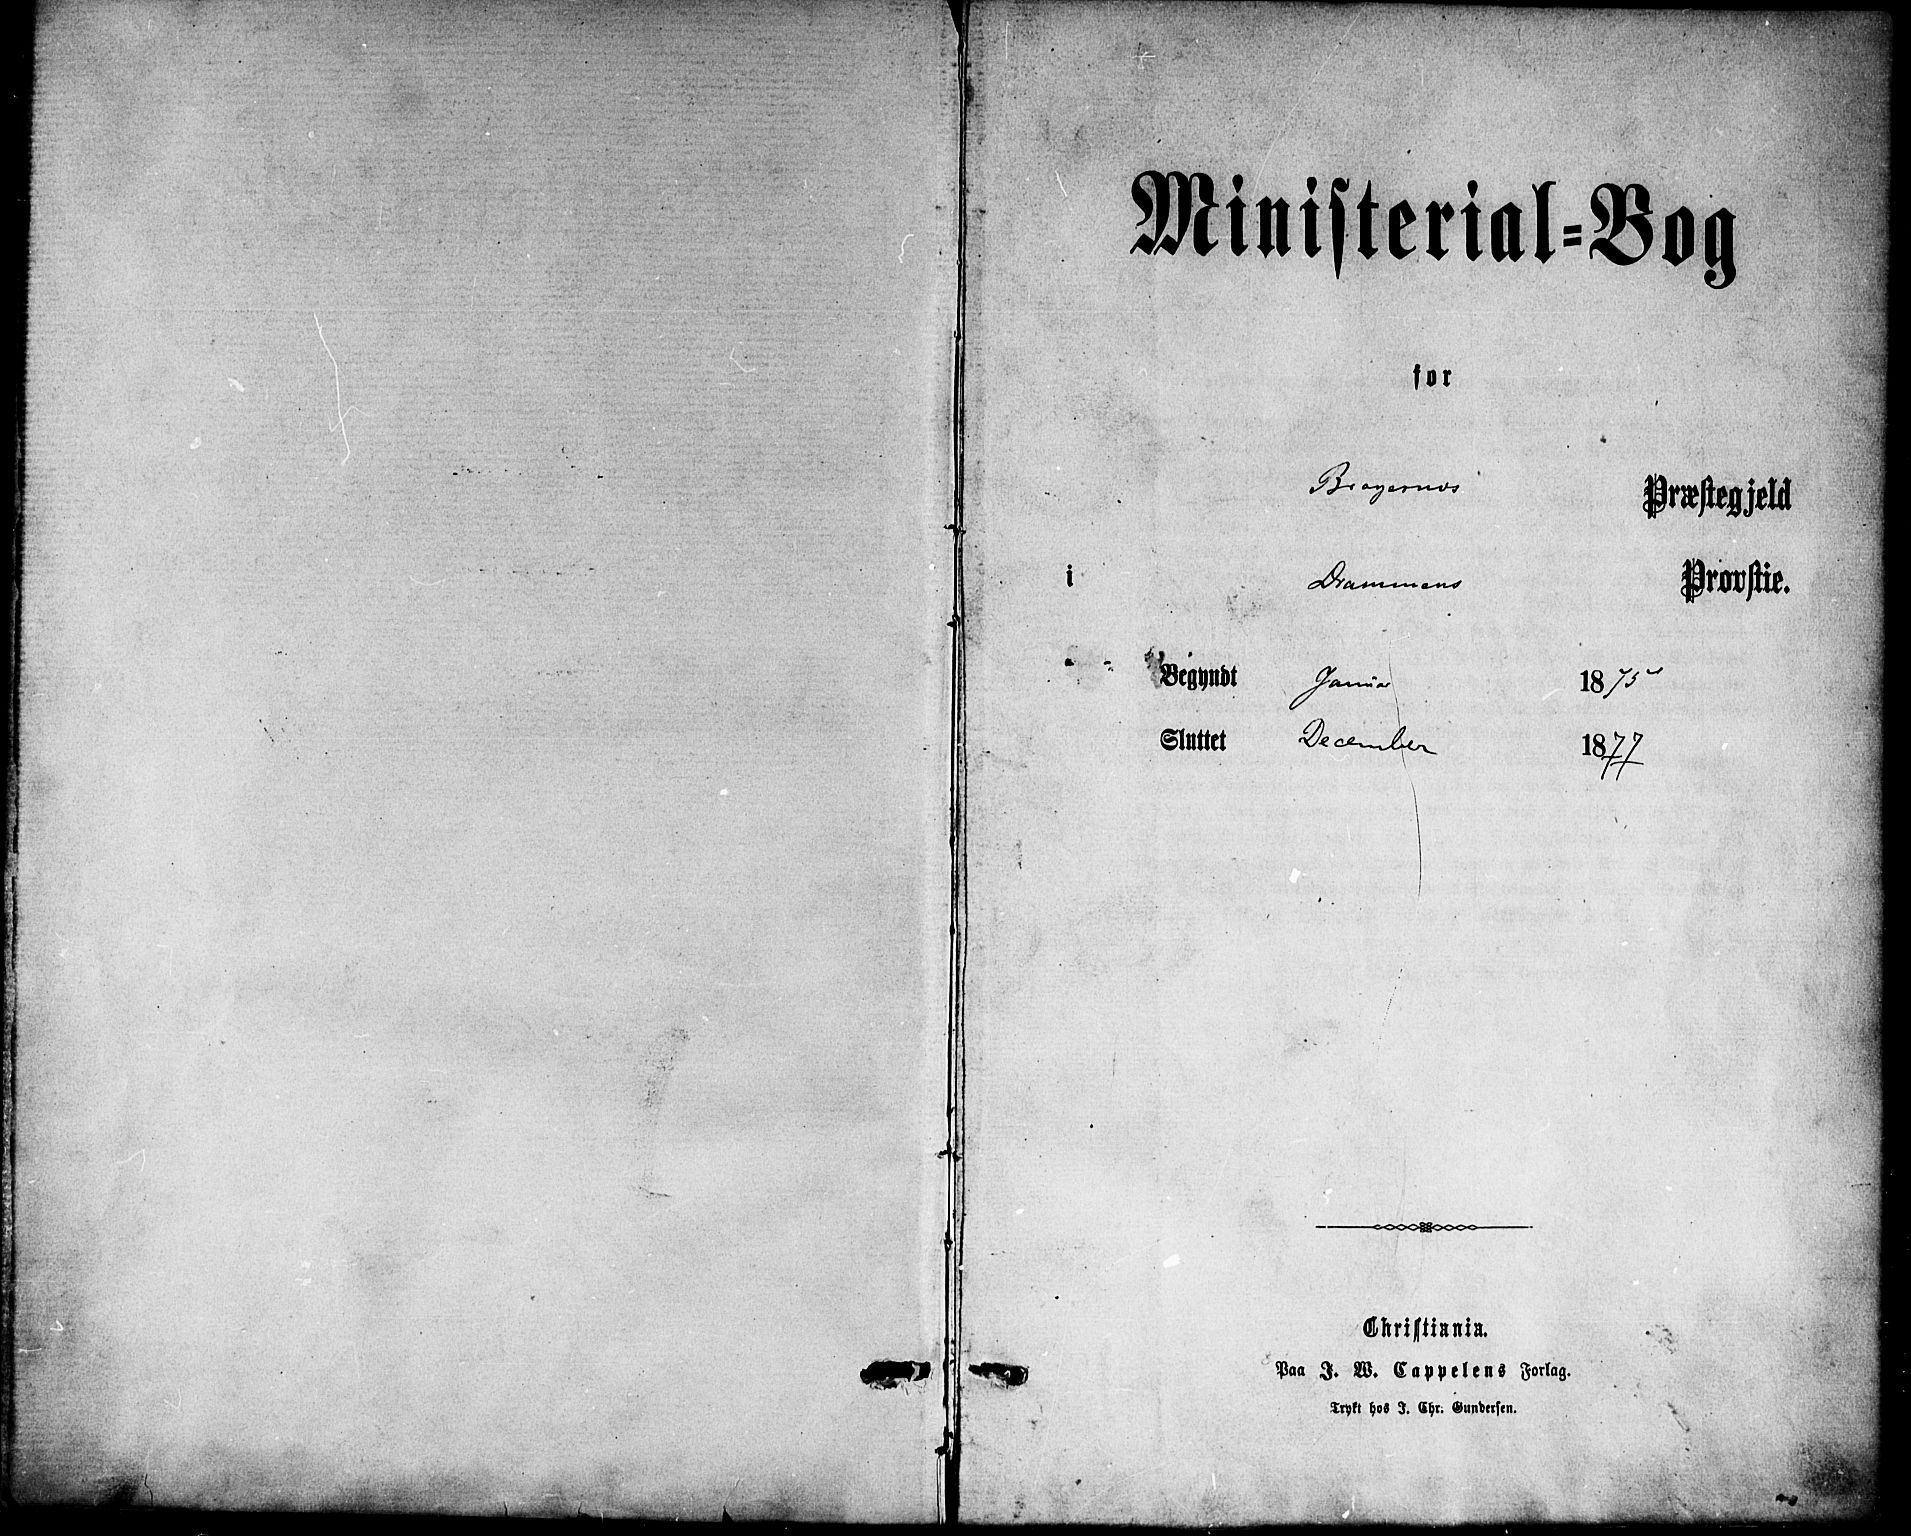 Ministerial=Bog
for
Bragernes Præstegjeld
i Drammens Provstie.
Begyndt Januar 1875
Sluttet December 1877
Christiania.
Paa J. W. Cappelens Forlag.
Trykt hos J. Chr. Gundersen.